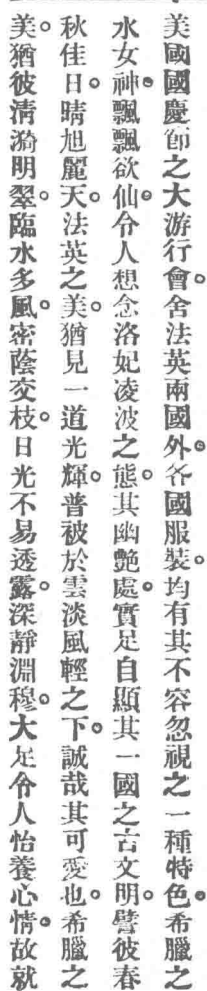 美國國慶節之大游行會。舍法英兩國外。各國服裝。均有其不容忽視之一種特色。希臘之
水女神。飄飄欲仙。令人想念洛妃凌波之態。其幽艶處。實足自顯其一國之古文明。譬彼春
秋佳日。晴旭麗天。法英之美。猶見一道光輝。普被於雲淡風輕之下。誠哉其可愛也。希臘之
美。猶彼淸漪明翠。臨水多風。密蔭交枝。日光不易透露。深靜淵穆。大足令人怡養心情。故就